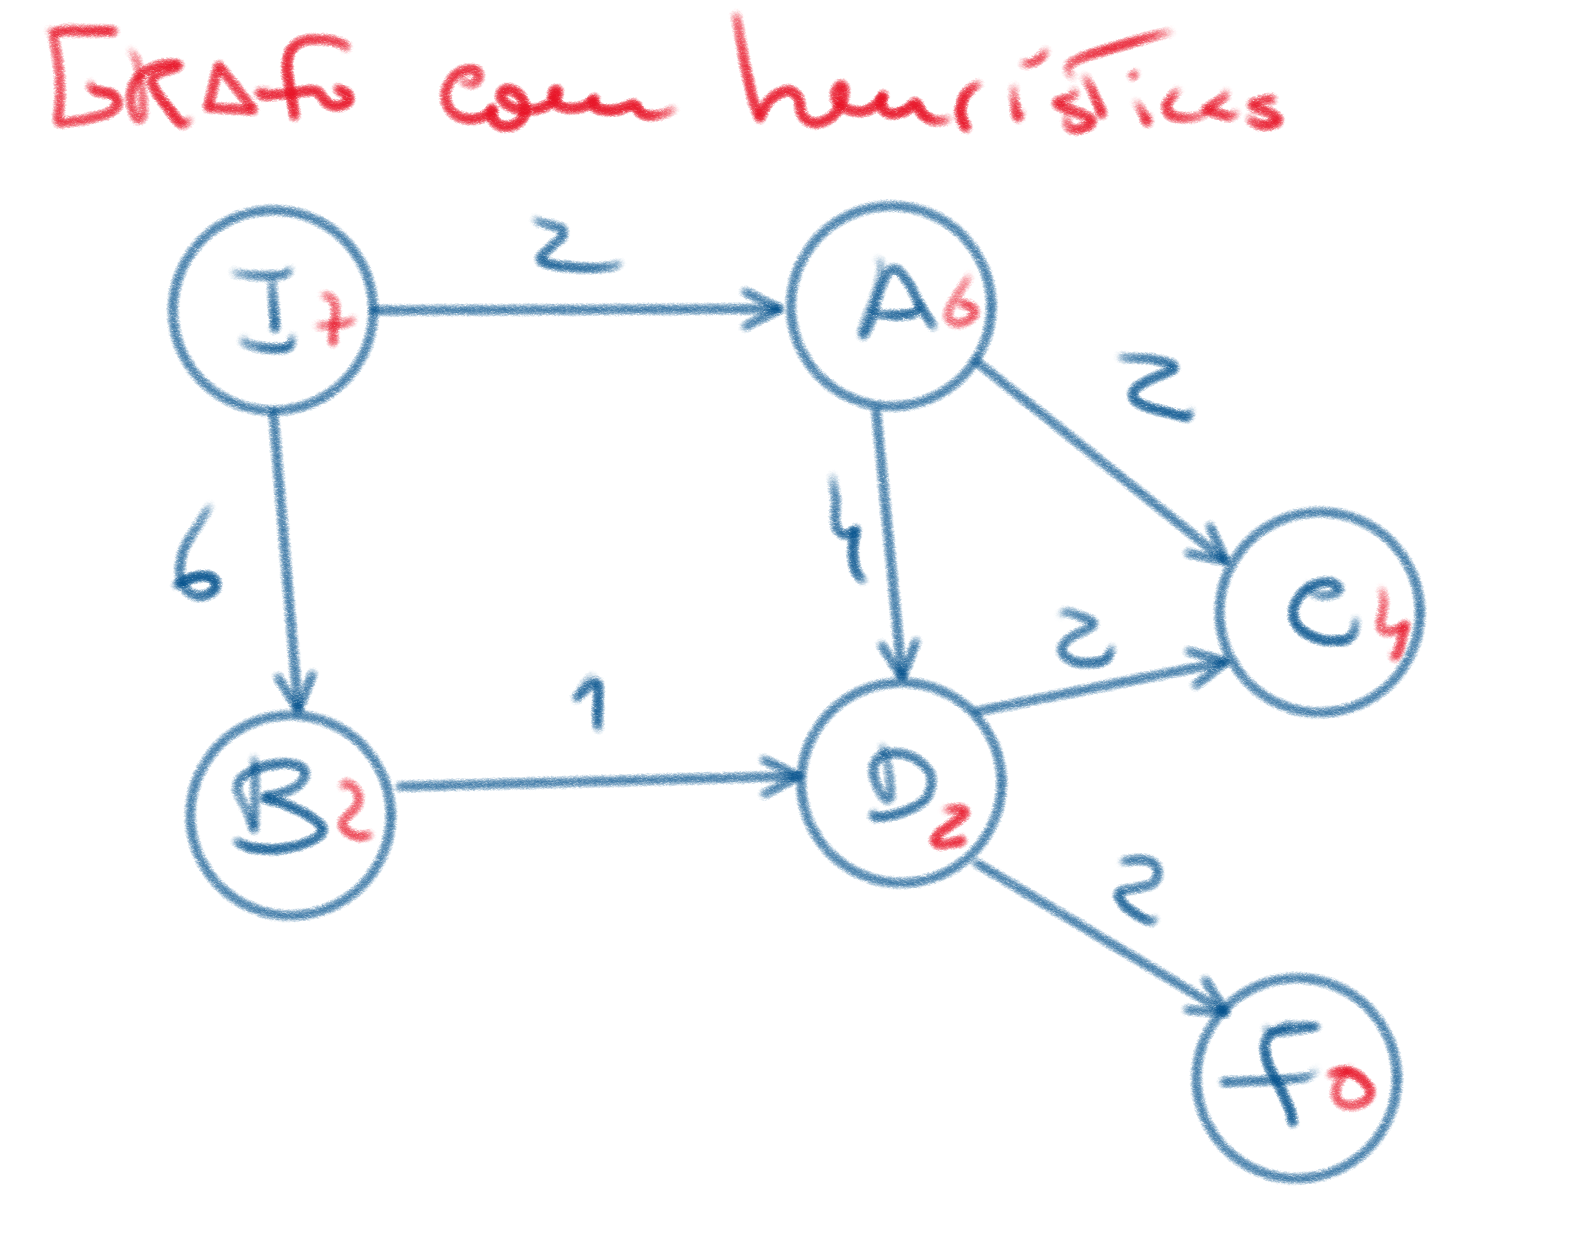 GRAfo com heurísticas
2
I 7
A 6
2
6
4
C 4
2
1
B 2
D 2
2
f 0